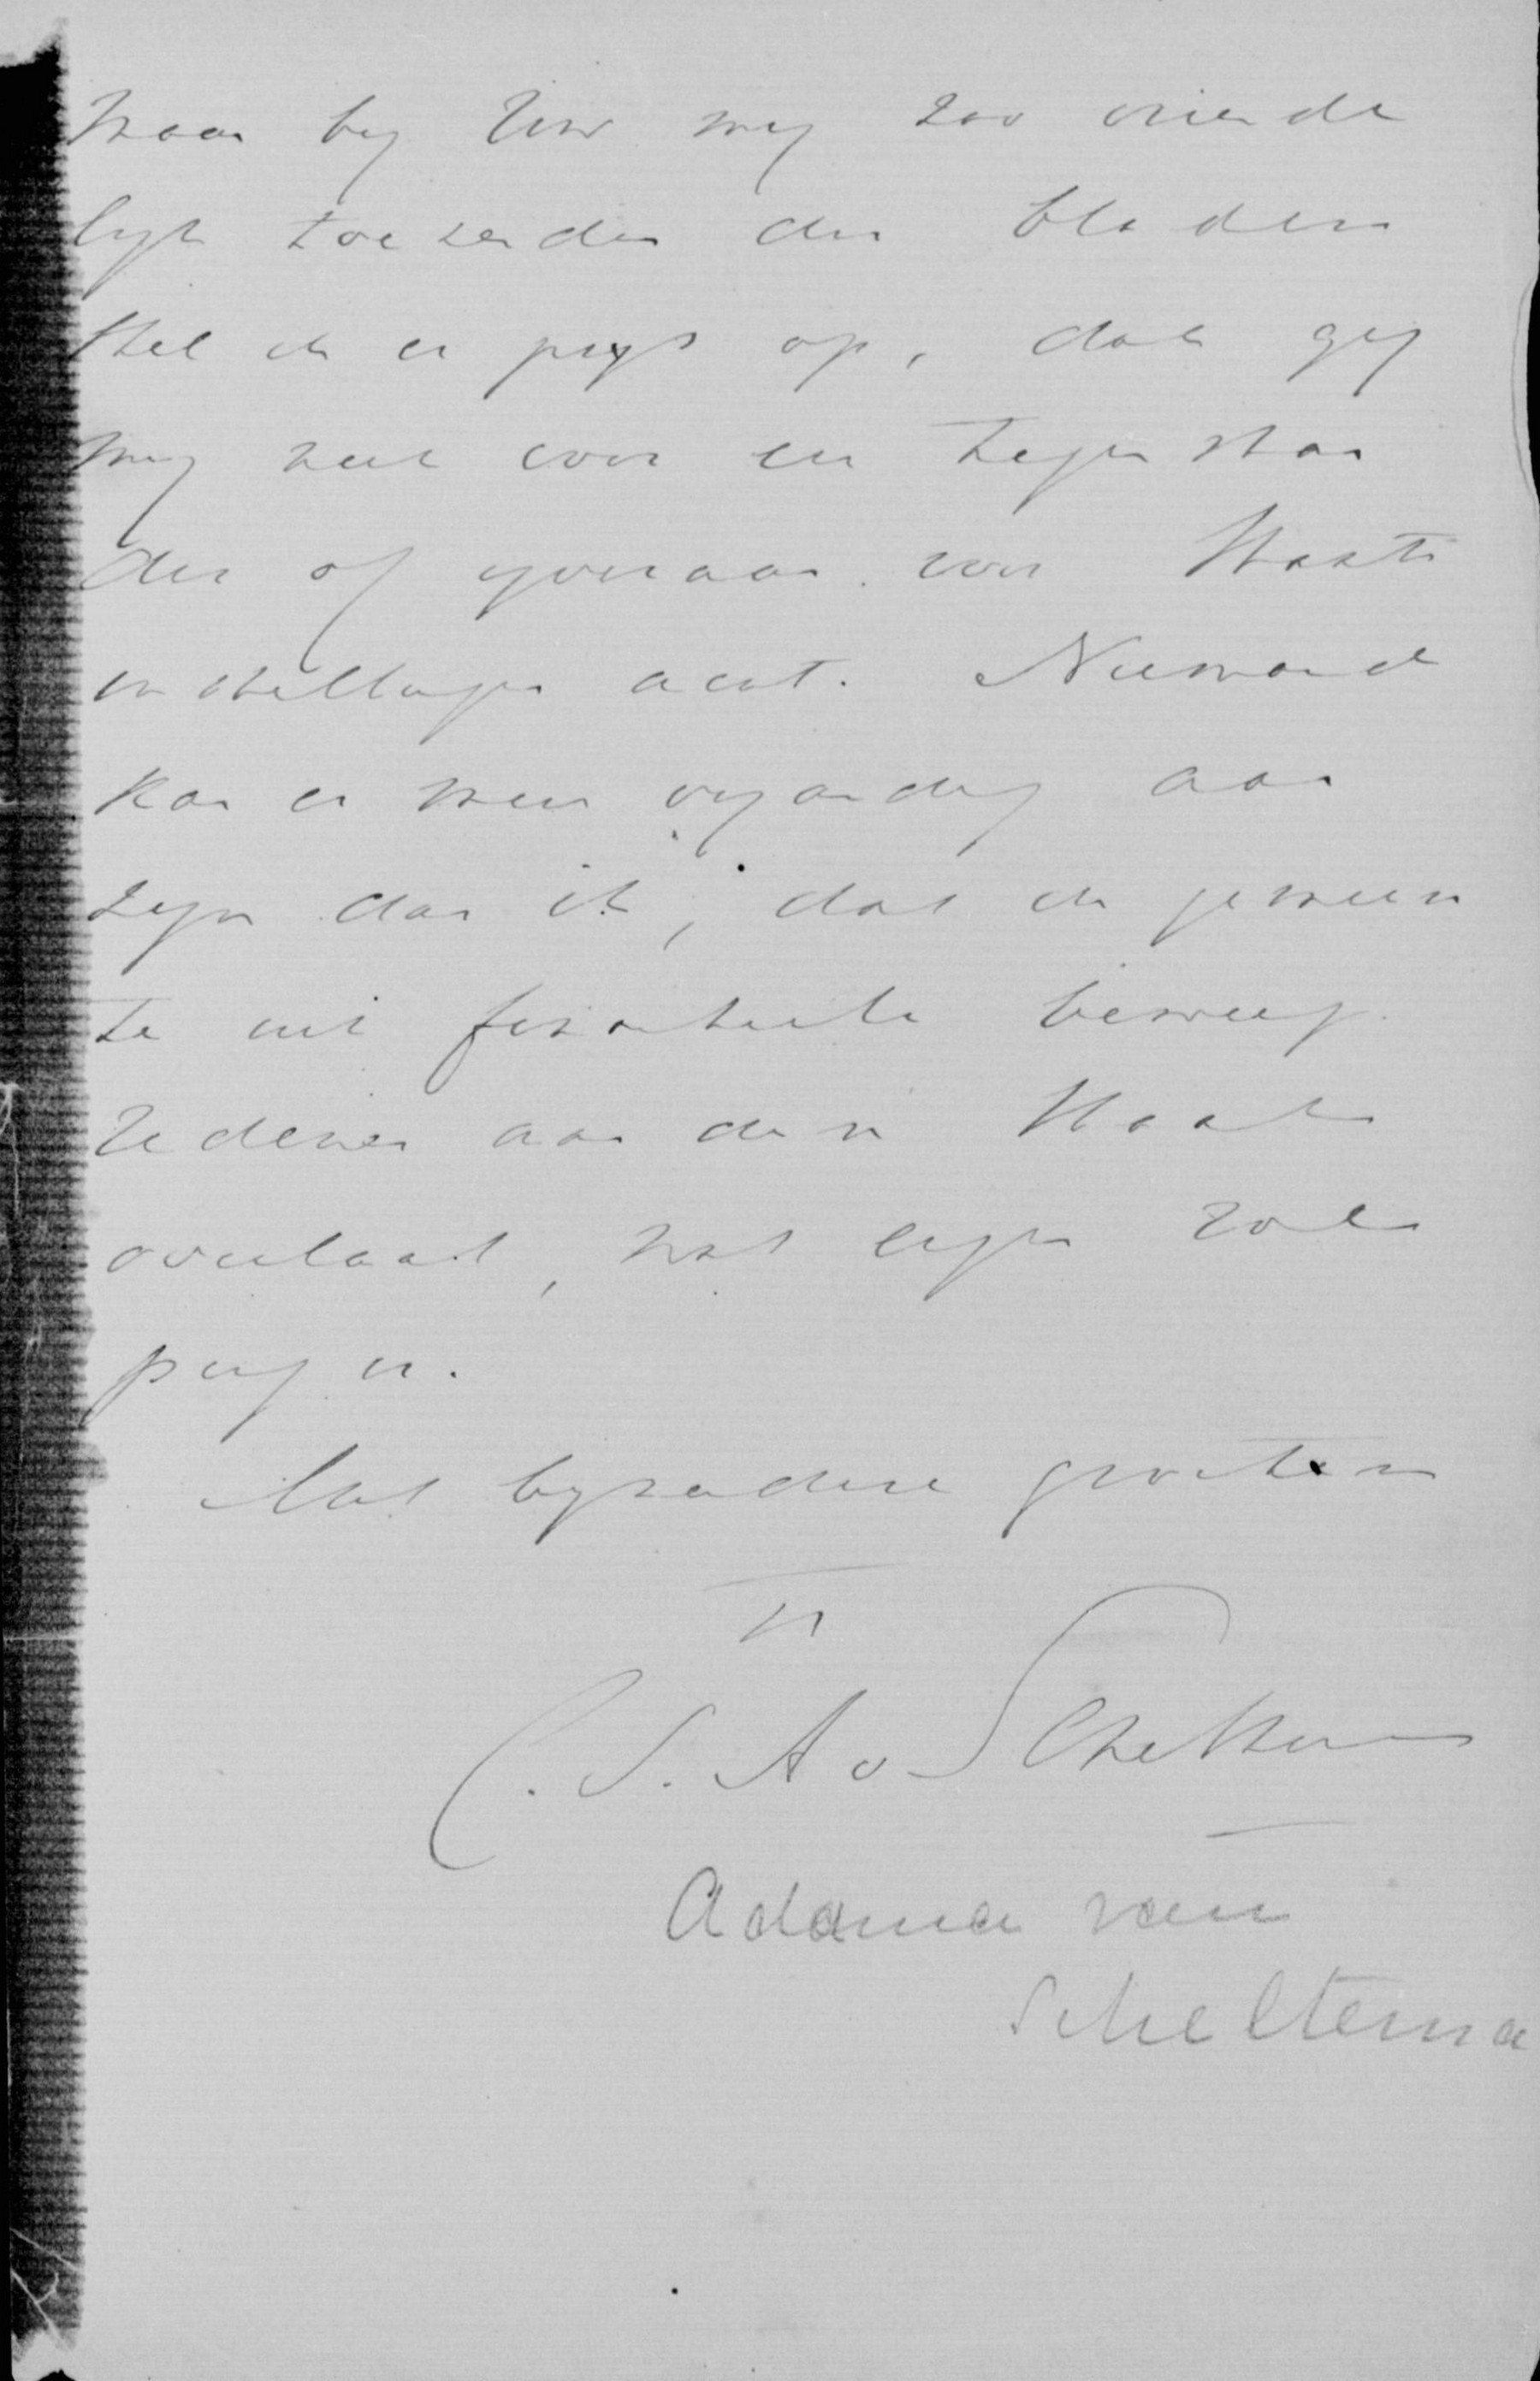 Maar by Uw my zoo vriende
lyk toezenden der bladen
stel ik er prys op, dat gy
my niet voor een tegenstan
der of yveraar voor Staats
instellingen acht. Niemand
kan er meer vyandig aan
zyn dan ik, dat de gemeen
te uit financieele
redenen aan den Staat
overlaat, wat eigen zol
pingen.
Met byzondere groeten
C. S. A v Scheltema
Adama van
Scheltema